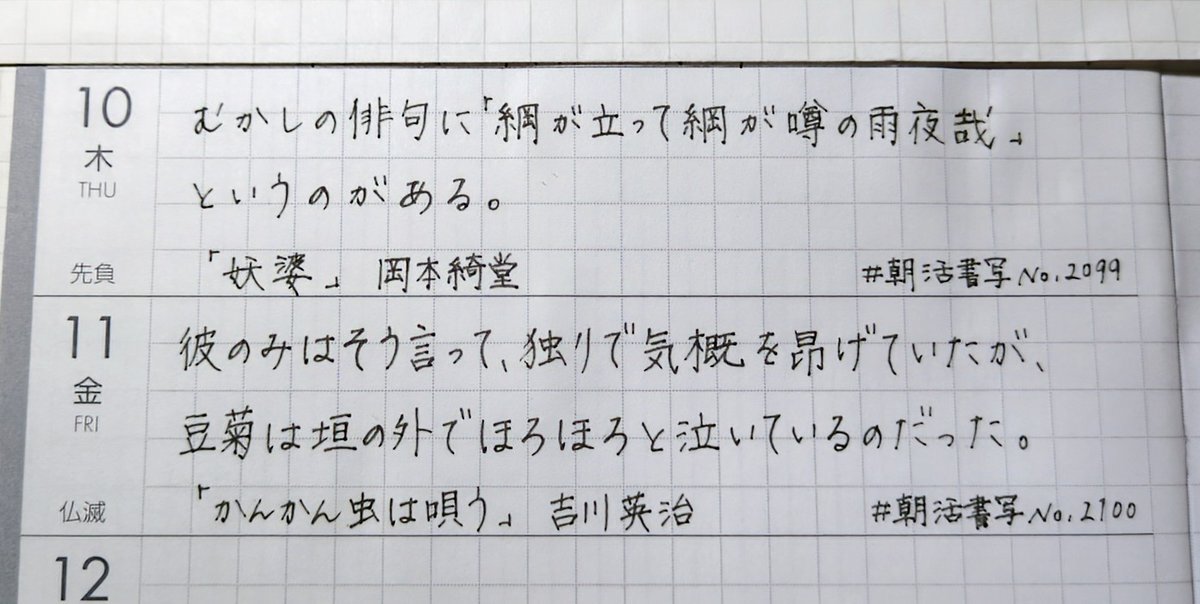 10
木
THU
むかしの俳句に「綱が立って綱が噂の雨夜哉」
というのがある。
先負
「妖婆」 岡本綺堂
#朝活書写No.2099
11
金
FRI
彼のみはそう言って、独りで気概を昂げていたが、
豆菊は垣の外でほろほろと泣いているのだった。
仏滅
「かんかん虫は唄う」 吉川英治
#朝活書写No.2100
12